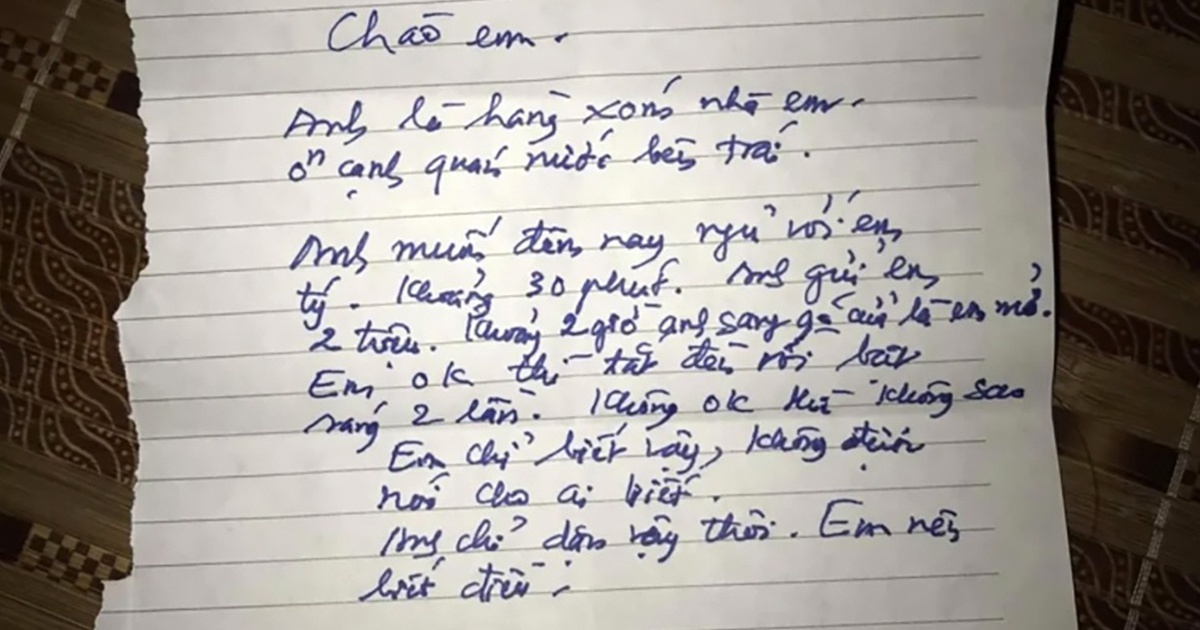 Chào em.
Anh là hàng xóm nhà em.
ở cạnh quán nước bên trái.
Anh muốn đêm nay ngủ với em
tý. Khoảng 30 phút. Anh gửi em
2 triệu. Khoảng 2 giờ anh sang gõ cửa là em mở.
Em ok thì tắt đèn rồi bật
sáng 2 lần. Không ok thì không sao
Em chỉ biết vậy, không được
nói cho ai biết.
Anh chỉ dặn vậy thôi. Em nên
biết điều.